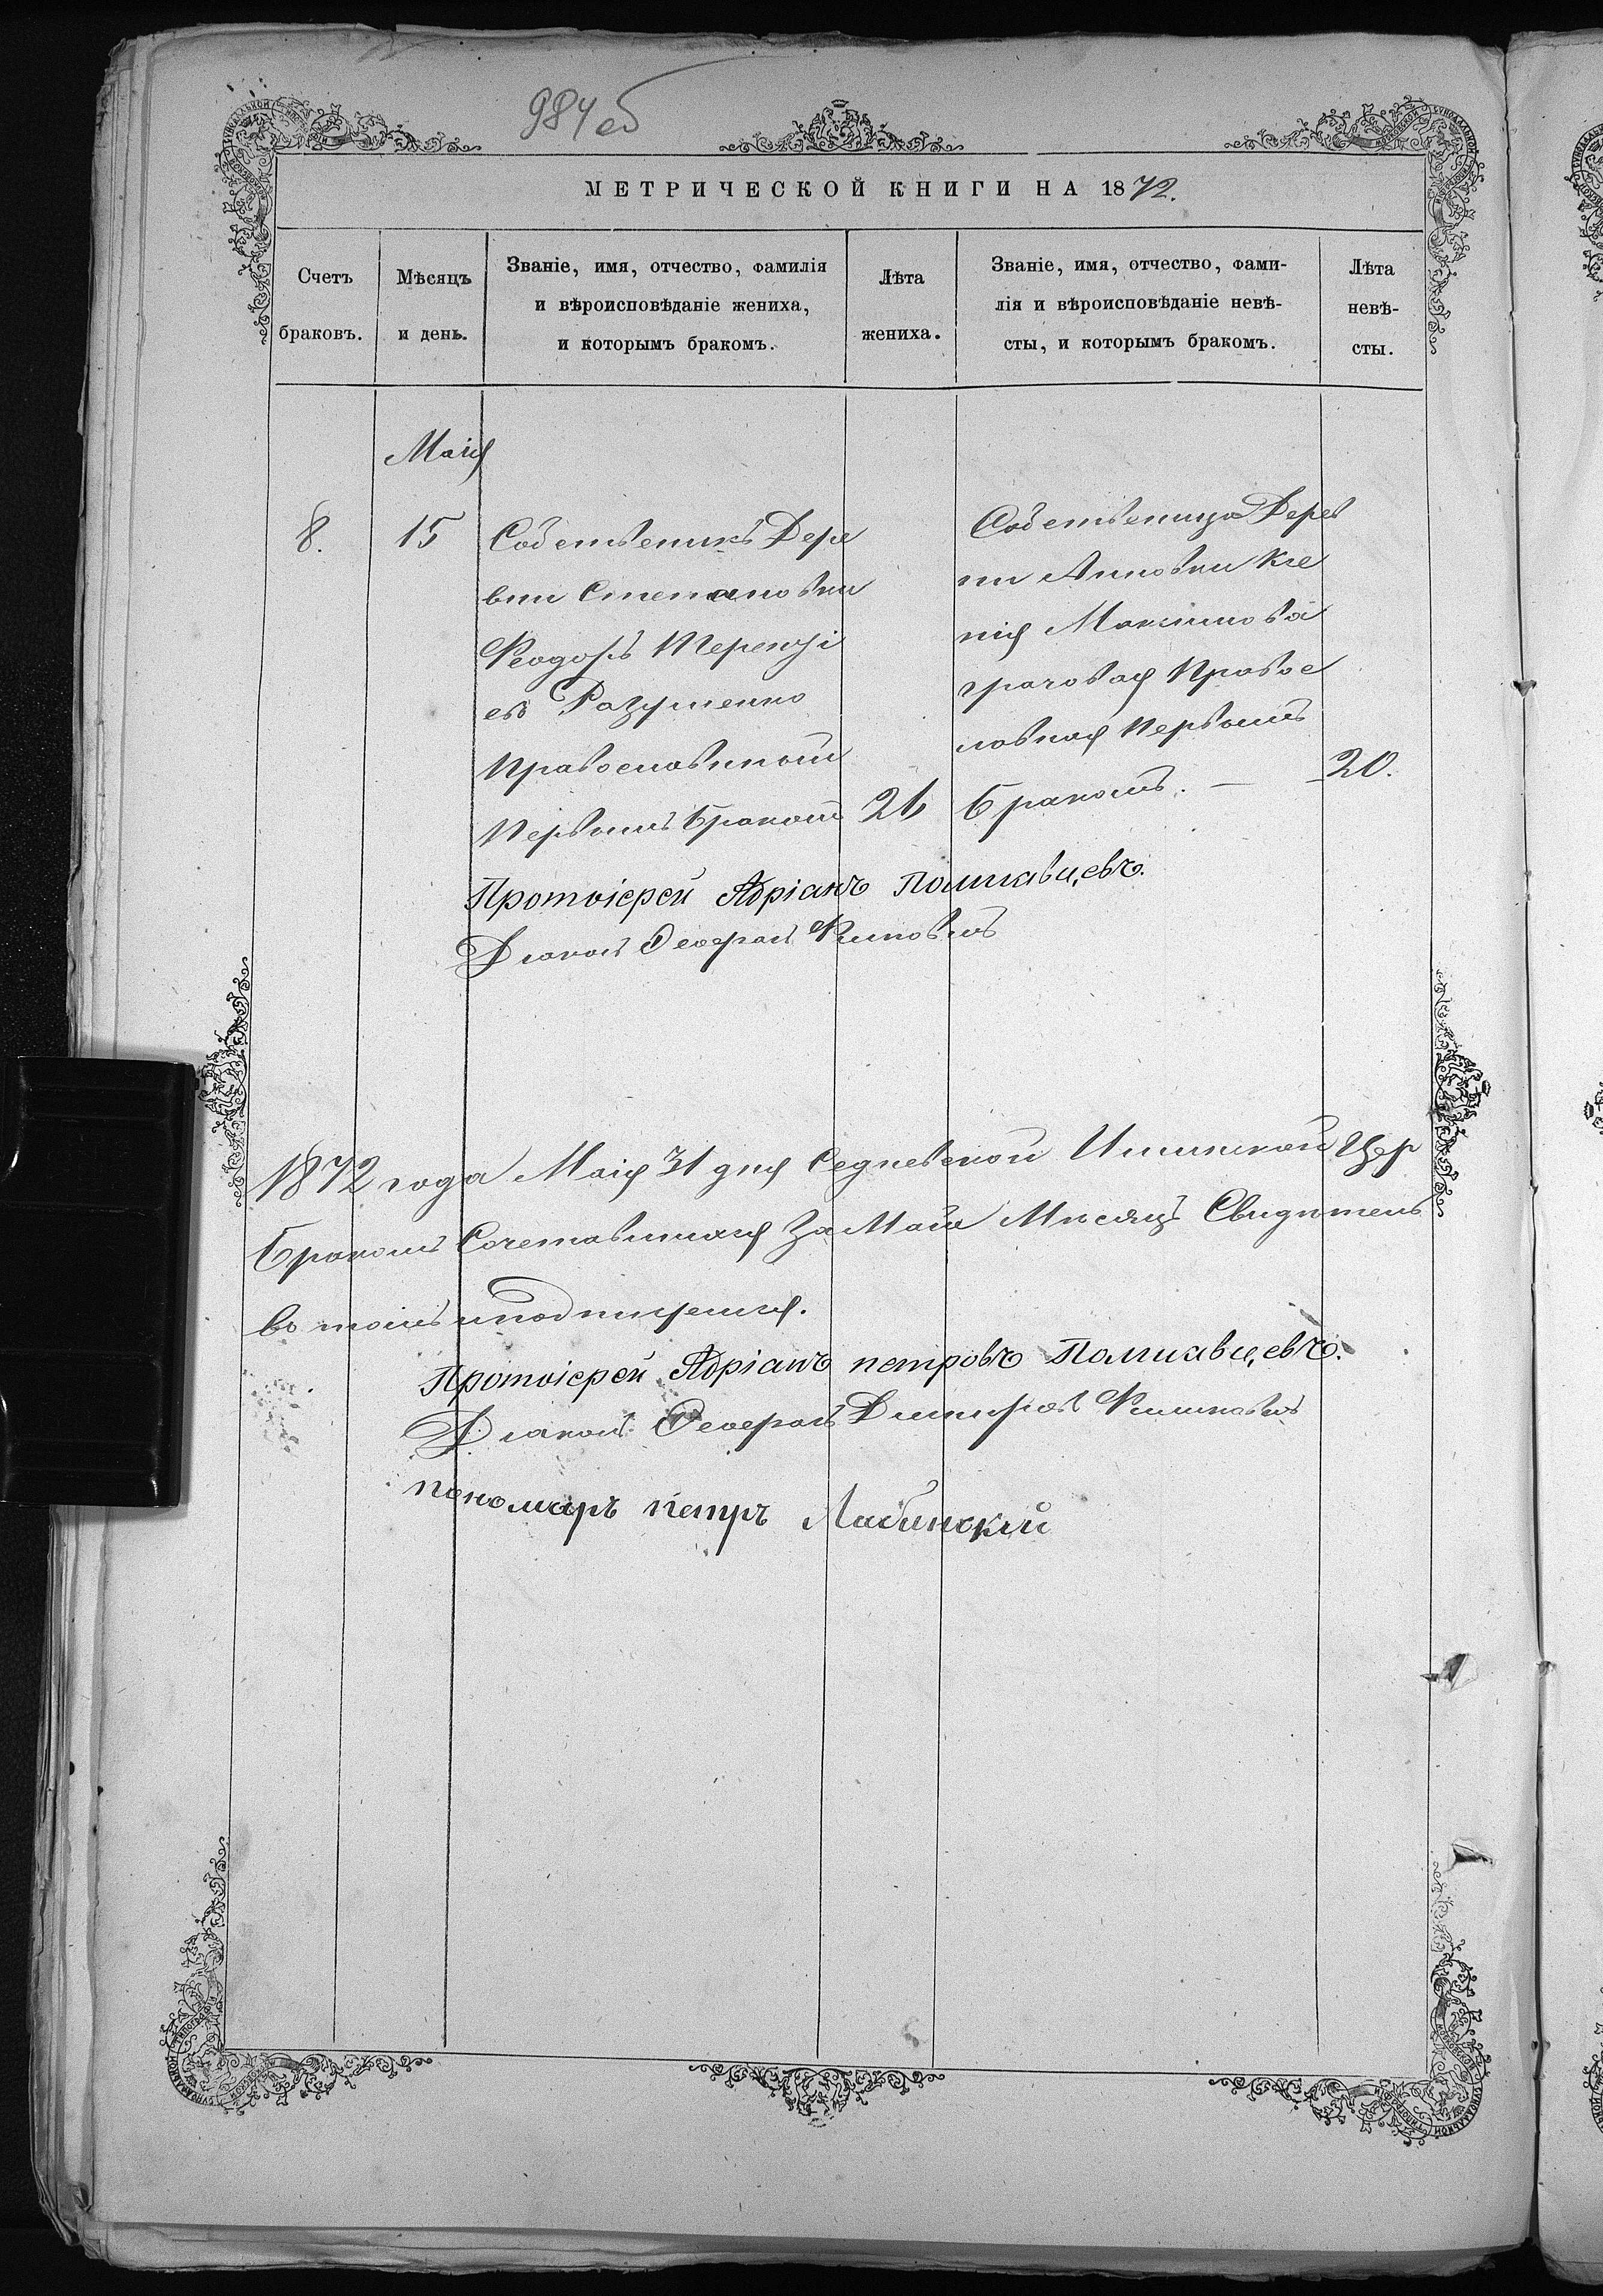 984 об
МЕТРИЧЕСКОЙ КНИГИ НА 1872.
Счетъ браковъ.
Мѣсяцъ и день.
Званіе, имя, отчество, фамилія
и вѣроисповѣданіе жениха,
и которымъ бракомъ.
Лѣта
жениха.
Званіе, имя, отчество, фами-
лія и вѣроисповѣданіе невѣ-
сты, и которымъ бракомъ.
Лѣта
невѣ-
сты.
Маія
8.
15
Собственикъ Дере
вни Степановки
Феодосъ Теренті
евъ Разуменко
Православной
Первымъ бракомъ
21
Собственица Дерев
ни Анновки Ксе
нія Максимова
Грачовая Правос
лавная Первымъ
бракомъ. —
20.
Протоіерей Адріанъ
Діаконъ
1872 года Маія 31 дня Седневской Цер
бракомъ Сочетавшихся за Май Мисяцъ Свидители
во томъ и подпишемся.
Протоіерей Адріанъ петровъ
Діаконъ
пономарь петръ Лабинскій